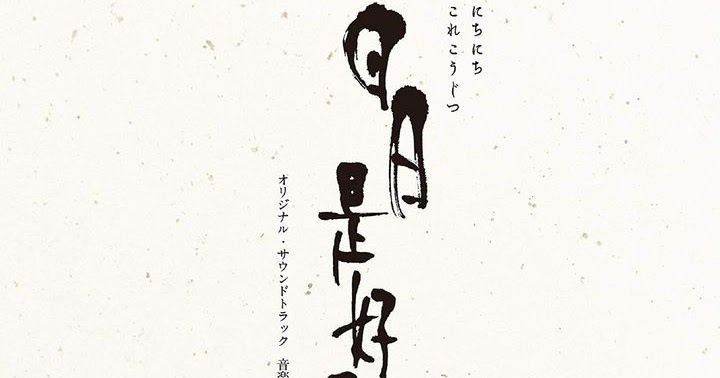 にちにち
これこうじつ
日日是好
オリジナル・サウンドトラック 音楽